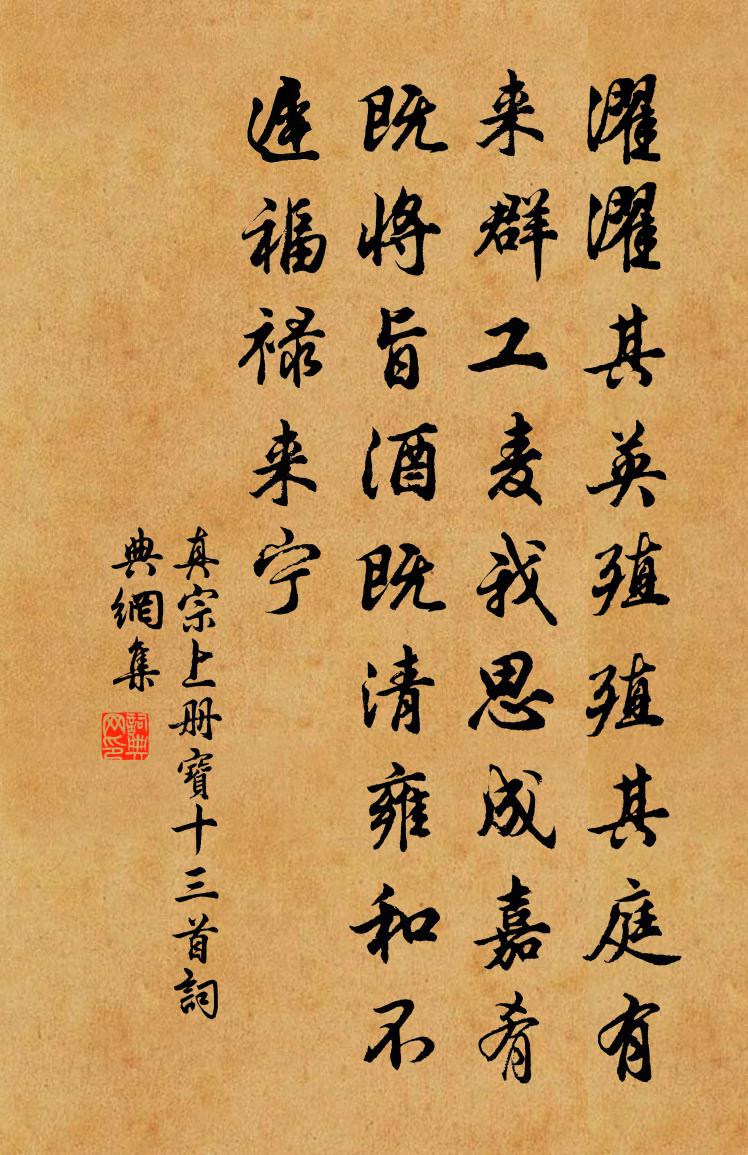 濯濯其英殖殖其庭有
来群工麦我思成嘉肴
既将旨酒既清雍和不
遅福禄来宁
真宗上册寶十三首詞
典網集
詞典
网印